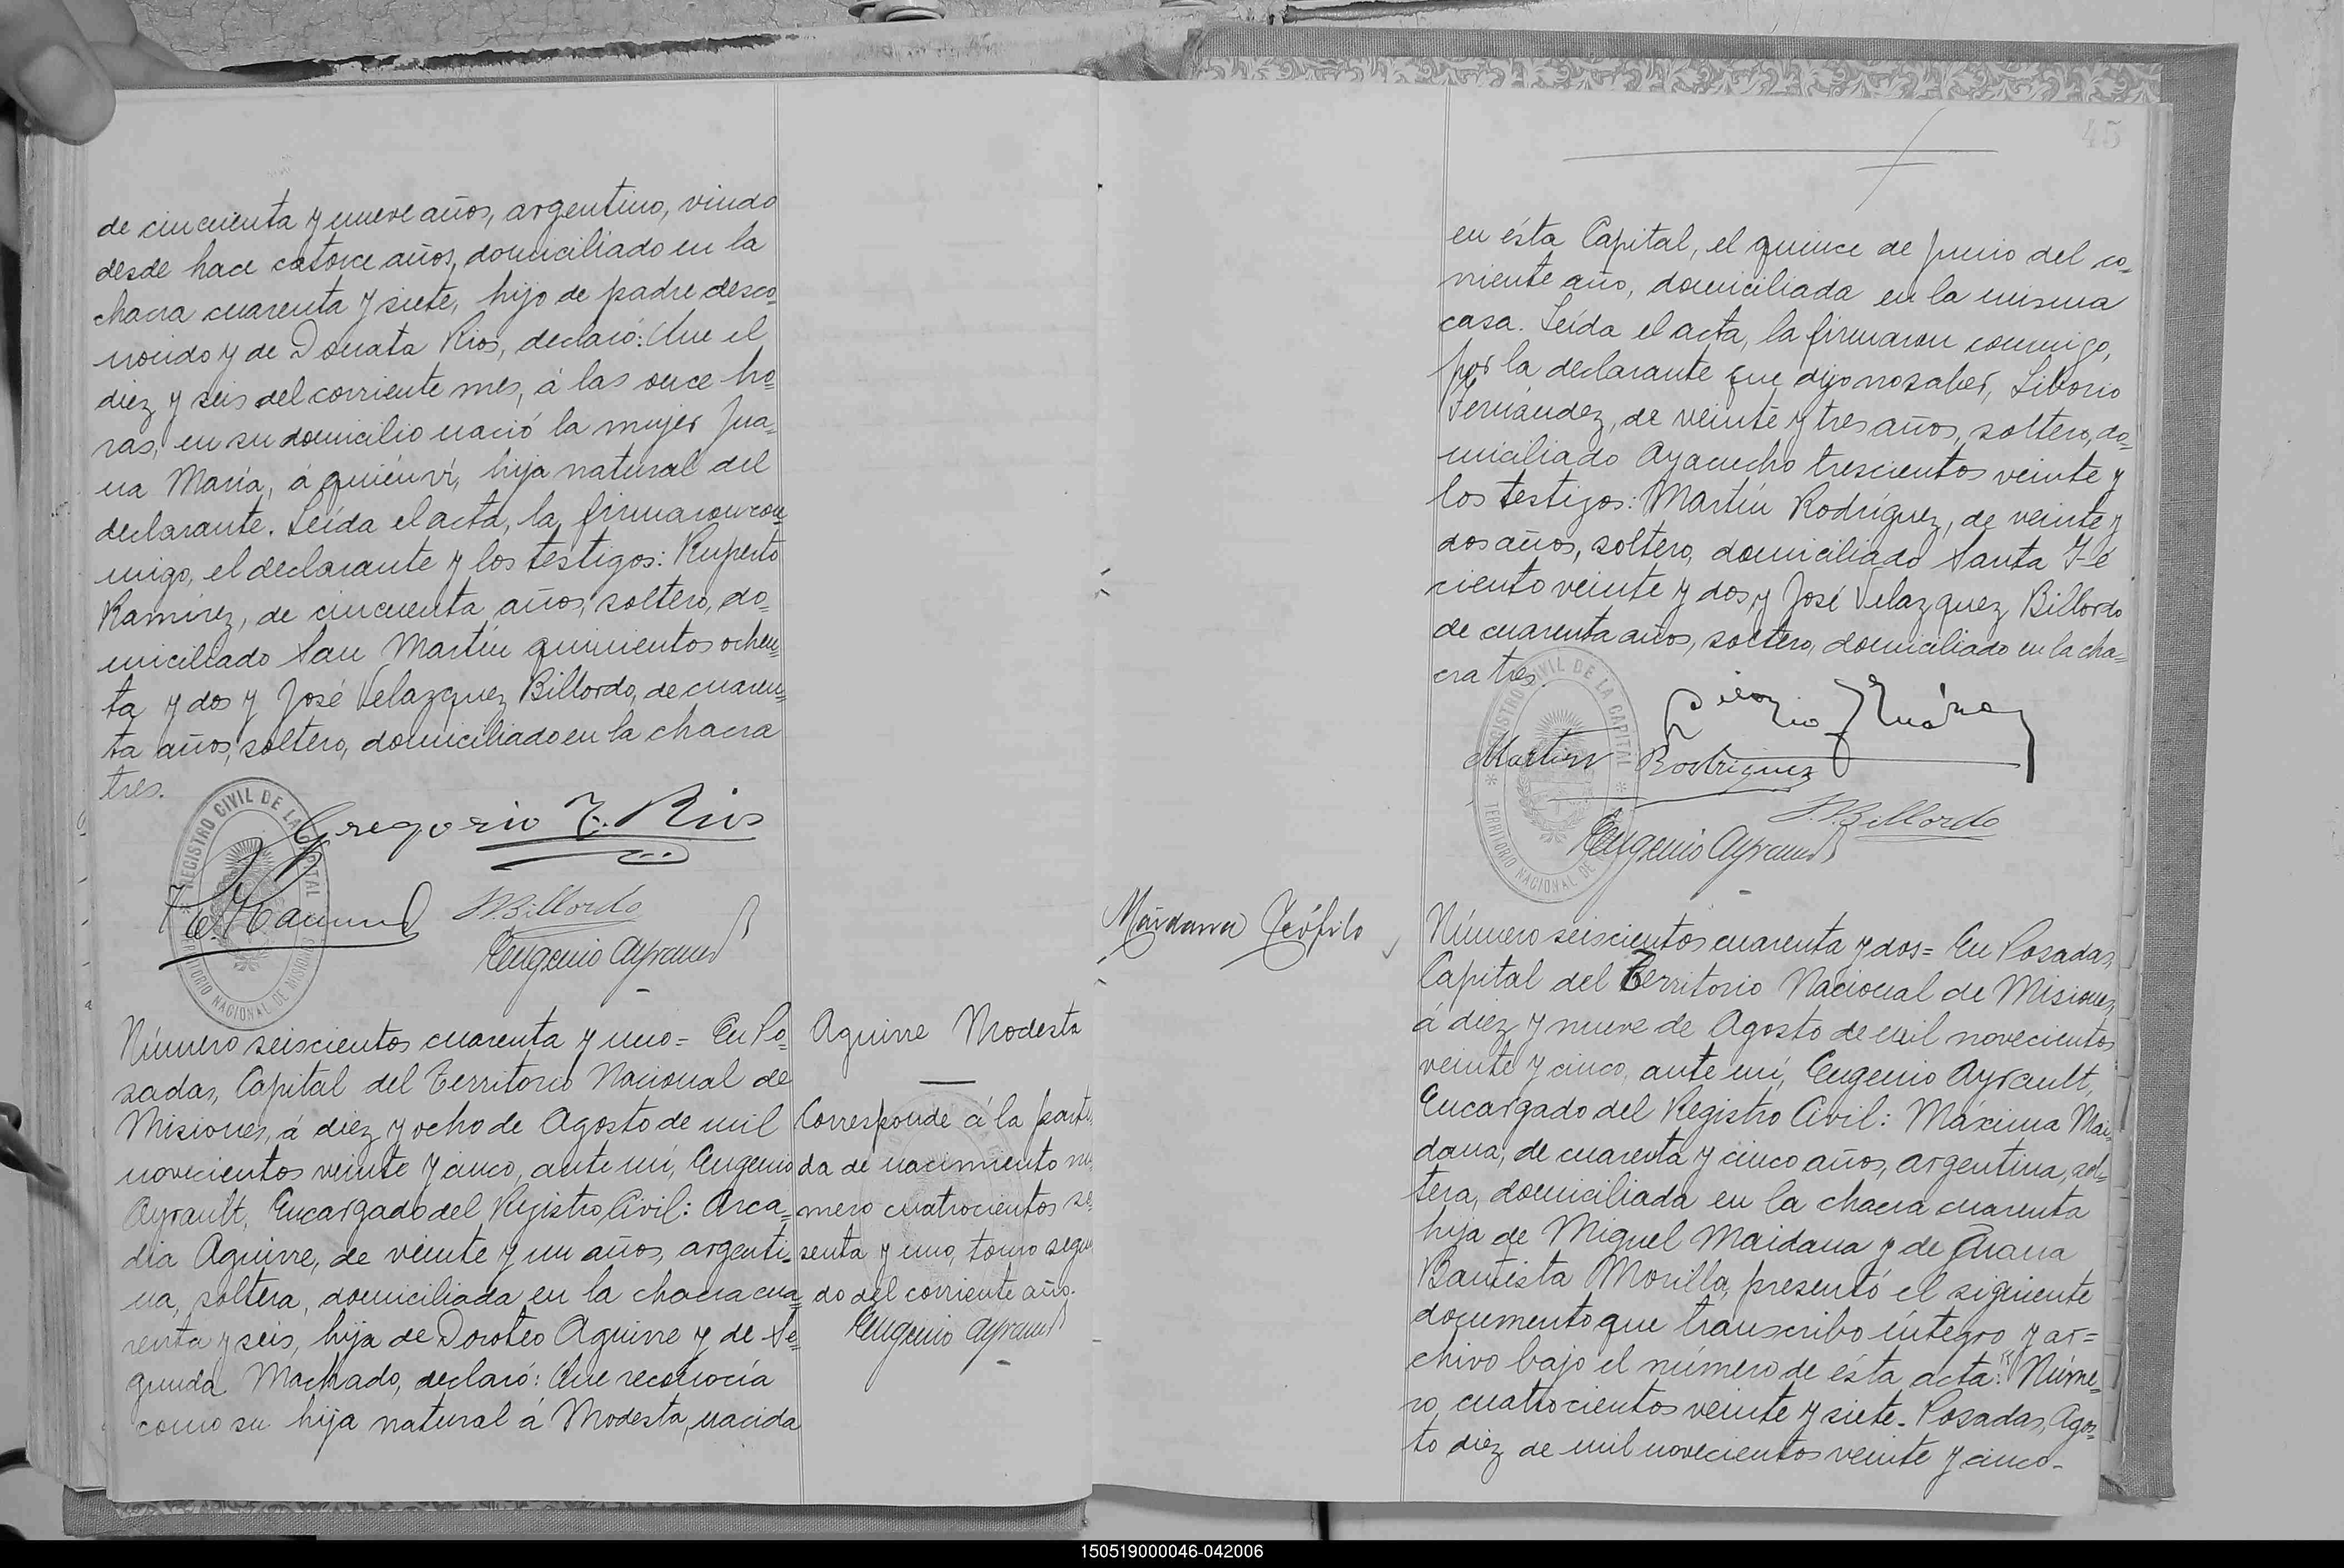 de cincuenta y nueve años, argentino, viudo
desde hace catorce años, domiciliado en la
chacra cuarenta y siete, hijo de padre desco=
nocido y de Donata Rios, declaró: Que el
diez y seis del corriente mes, á las once ho=
ras, en su domicilio nació la mujer Jua=
na María, á quién ví, hija natural del
declarante. Leída el acta, la firmaron con=
migo, el declarante y los testigos: Ruperto
Ramírez, de cincuenta años, soltero, do=
miciliado San Martín quinientos ochen=
ta y dos y José Velazquez Billordo, de cuaren=
ta años, soltero, domiciliado en la chacra
tres.
REGISTRO CIVIL DE LA CAPITAL
TERRITORIO NACIONAL DE MISIONES
Gregorio F. Rios
Billordo
Eugenio Ayrault
Número seiscientos cuarenta y uno = En Po=
sadas, Capital del Territorio Nacional de
Misiones, á diez y ocho de Agosto de mil
novecientos veinte y cinco, ante mí, Eugenio
Ayrault, Encargado del Registro Civil: Arca=
dia Aguirre, de veinte y un años, argenti=
na, soltera, domiciliada en la chacra cua=
renta y seis, hija de Doroteo Aguirre y de Se=
gunda Machado, declaró: Que reconocía
como su hija natural á Modesta, nacida
Aguirre Modesta
Corresponde á la parti
da de nacimiento nú
mero cuatrocientos se
senta y uno, tomo segun
do del corriente año.
Eugenio Ayrault
45
en ésta Capital, el quince de Junio del co=
rriente año, domiciliada en la misma
casa. Leída el acta, la firmaron conmigo,
por la declarante que dijo no saber, Liborio
Fernández, de veinte y tres años, soltero, do=
miciliado Ayacucho trescientos veinte y
los testigos: Martín Rodríguez, de veinte y
dos años, soltero, domiciliado Santa Fé
ciento veinte y dos y José Velazquez Billordo
de cuarenta años, soltero, domiciliado en la cha=
cra tres.
REGISTRO CIVIL DE LA CAPITAL
TERRITORIO NACIONAL DE
Martin Rodriguez
Billordo
Eugenio Ayrault
Maidana Teófilo
Número seiscientos cuarenta y dos = En Posadas,
Capital del Territorio Nacional de Misiones,
á diez y nueve de Agosto de mil novecientos
veinte y cinco, ante mí, Eugenio Ayrault,
Encargado del Registro Civil: Máxima Mai=
dana, de cuarenta y cinco años, argentina, sol=
tera, domiciliada en la chacra cuarenta
hija de Miguel Maidana y de Juana
Bautista Morilla, presentó el siguiente
documento que transcribo íntegro y ar=
chivo bajo el número de ésta acta: "Núme=
ro cuatrocientos veinte y siete. Posadas, Agos=
to diez de mil novecientos veinte y cinco.
150519000046-042006